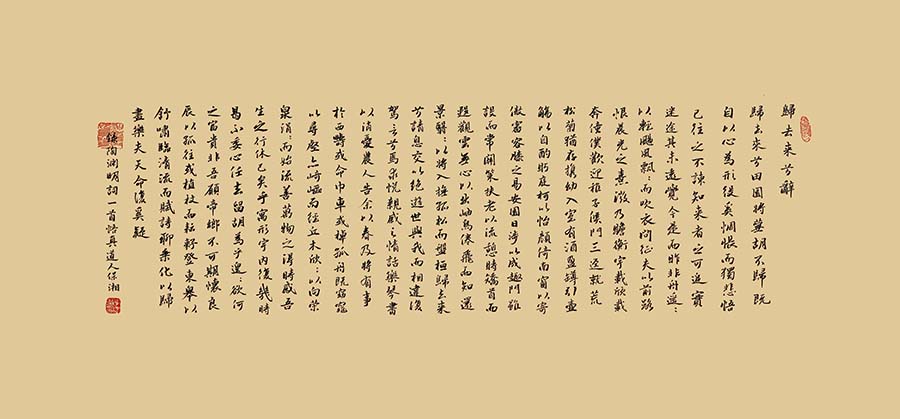 歸去來兮辭
歸去來兮田園將蕪胡不歸既
自以心為形役奚惆悵而獨悲悟
已往之不諫知來者之可追實
迷途其未遠覺今是而昨非舟遙〻
以輕颺風飄〻而吹衣問征夫以前路
恨晨光之熹微乃瞻衡宇載欣載
奔僮僕歡迎稚子候門三逕就荒
松菊猶存攜幼入室有酒盈罇引壺
觴以自酌眄庭柯以怡顏倚南窗以寄
傲審容膝之易安園日涉以成趣門雖
設而常關策扶老以流憩時矯首而
遐觀雲無心以出岫鳥倦飛而知還
景翳〻以將入撫孤松而盤桓歸去來
兮請息交以絕遊世與我而相違復
駕言兮焉求悅親戚之情話樂琴書
以消憂農人告余以春及將有事
於西疇或命巾車或棹孤舟既窈窕
以尋壑亦崎嶇而徑丘木欣〻以向榮
泉涓〻而始流善萬物之得時感吾
生之行休已矣乎寓形宇內復幾時
曷不委心任去留胡為乎遑〻欲何
之富貴非吾願帝鄉不可期懷良
辰以孤往或植杖而耘耔登東皋以
舒嘯臨清流而賦詩聊乘化以歸
盡樂夫天命復奚疑
錄陶淵明詞一首悟真道人保湘